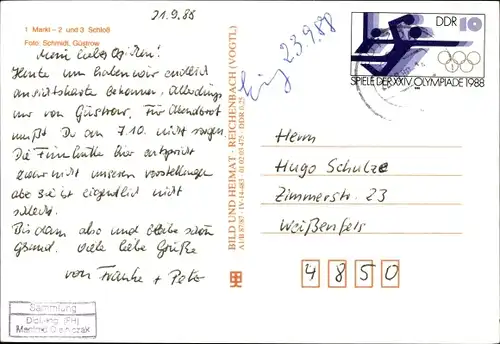 21.9.88
1 Markt – 2 und 3 Schloß
Foto: Schmidt, Güstrow
Mein liebes
Heute um haben wir endlich
Ansichtskarte bekommen, Allerdings
nur von Güstrow. Für Abendbrot
mußt Du am 7.10. nicht sorgen.
Die hier entspricht
zwar nicht unseren Vorstellungen
aber sie ist eigentlich nicht
schlecht.
Bis dann also und bleibe schön
Gesund. Viele liebe Grüße
von Frauke + Pete
Sammlung
Manfred
23.9.88
BILD UND HEIMAT · REICHENBACH (VOGTL)
A1/B 87/87 · IV-14-483 01 02 03 475 · DDR 0,25
DDR 10
SPIELE DER XXIV. OLYMPIADE 1988
Herrn
Hugo Schulze
Zimmerstr. 23
Weißenfels
4850